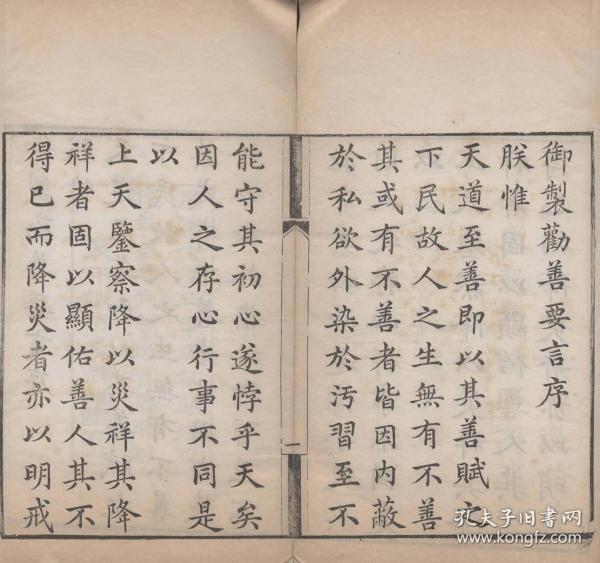 御製勸善要言序
朕惟
天道至善即以其善賦之
下民故人之生無有不善
其或有不善者皆因内蔽
於私欲外染於汚習至不
能守其初心遂悖乎天矣
因人之存心行事不同是
以
上天鑒察降以災祥其降
祥者固以顯佑善人其不
得已而降災者亦以明戒
一
孔夫子旧书网
www.kongfz.com